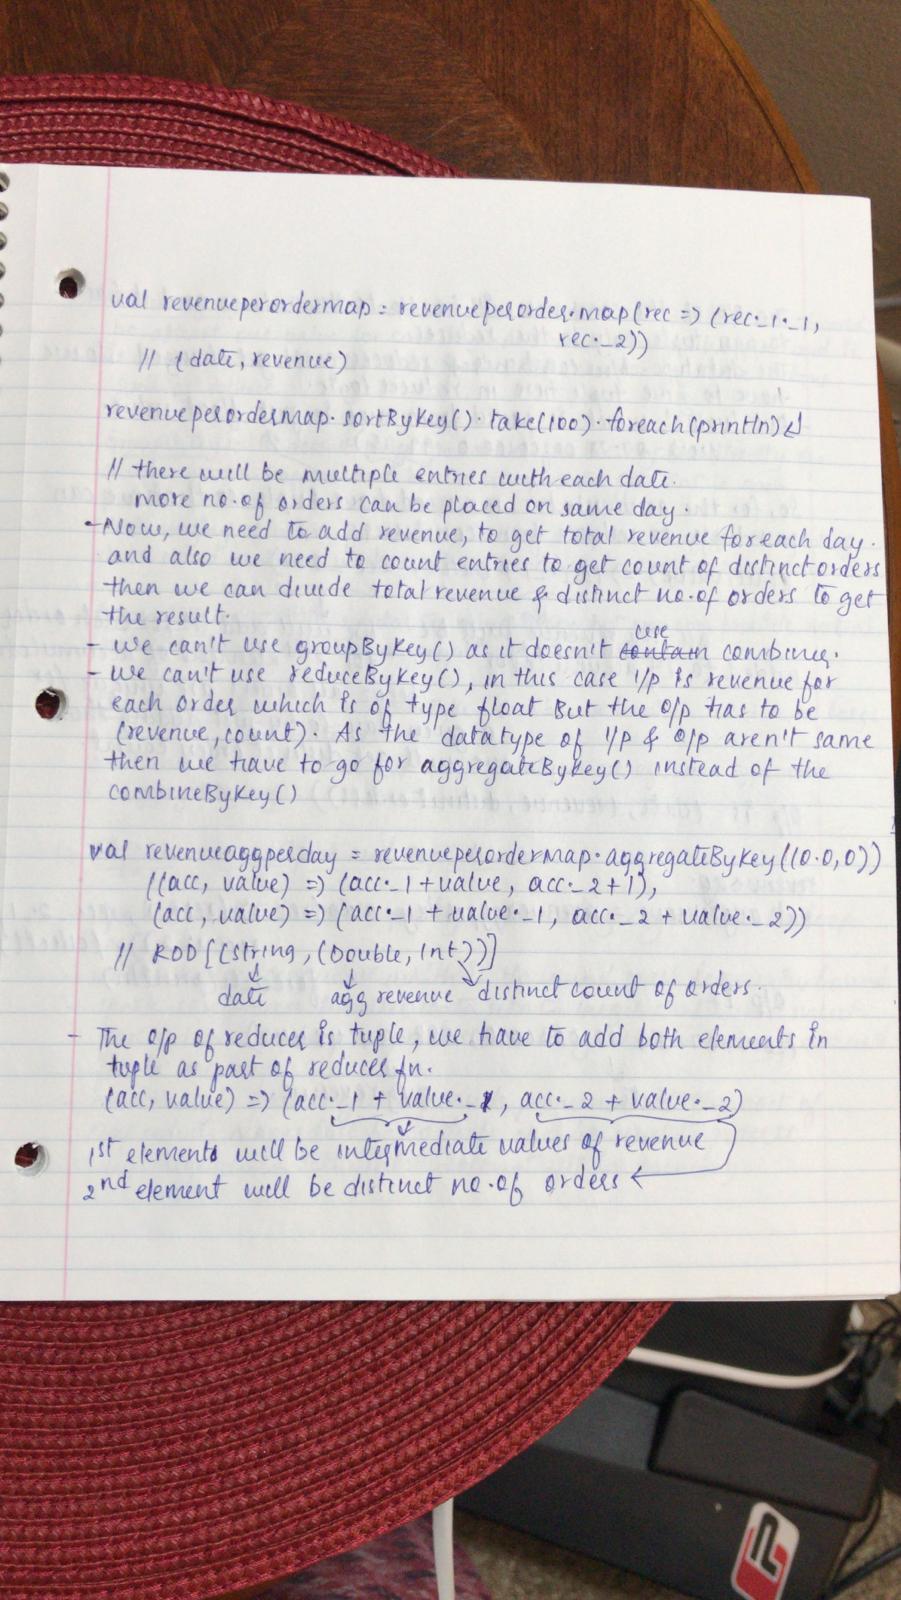 val revenueperordermap = revenueperorder.map(rec => (rec._1._1,
rec._2))
// (date, revenue)
revenueperordermap.sortByKey().take(100).foreach(println)
// there will be multiple entries with each date.
more no.of orders can be placed on same day.
- Now, we need to add revenue, to get total revenue for each day.
and also we need to count entries to get count of distinct orders
then we can divide total revenue & distinct no.of orders to get
the result.
use
- we can't use groupByKey() as it doesn't contain combiner.
- we can't use reduceByKey(), in this case i/p is revenue for
each order which is of type float But the o/p has to be
(revenue, count). As the datatype of i/p & o/p aren't same
then we have to go for aggregateByKey() instead of the
combineByKey()
val revenueaggperday = revenueperordermap.aggregateByKey((0.0,0))
((acc, value) => (acc._1+value, acc._2+1),
(acc, value) => (acc._1 + value._1, acc._2 + value._2))
// RDD[(string, (Double, Int))]
date agg revenue distinct count of orders.
- The o/p of reducer is tuple, we have to add both elements in
tuple as part of reducer fn.
(acc, value) => (acc._1 + value._1, acc._2 + value._2)
1st elements will be intermediate values of revenue
2nd element will be distinct no.of orders